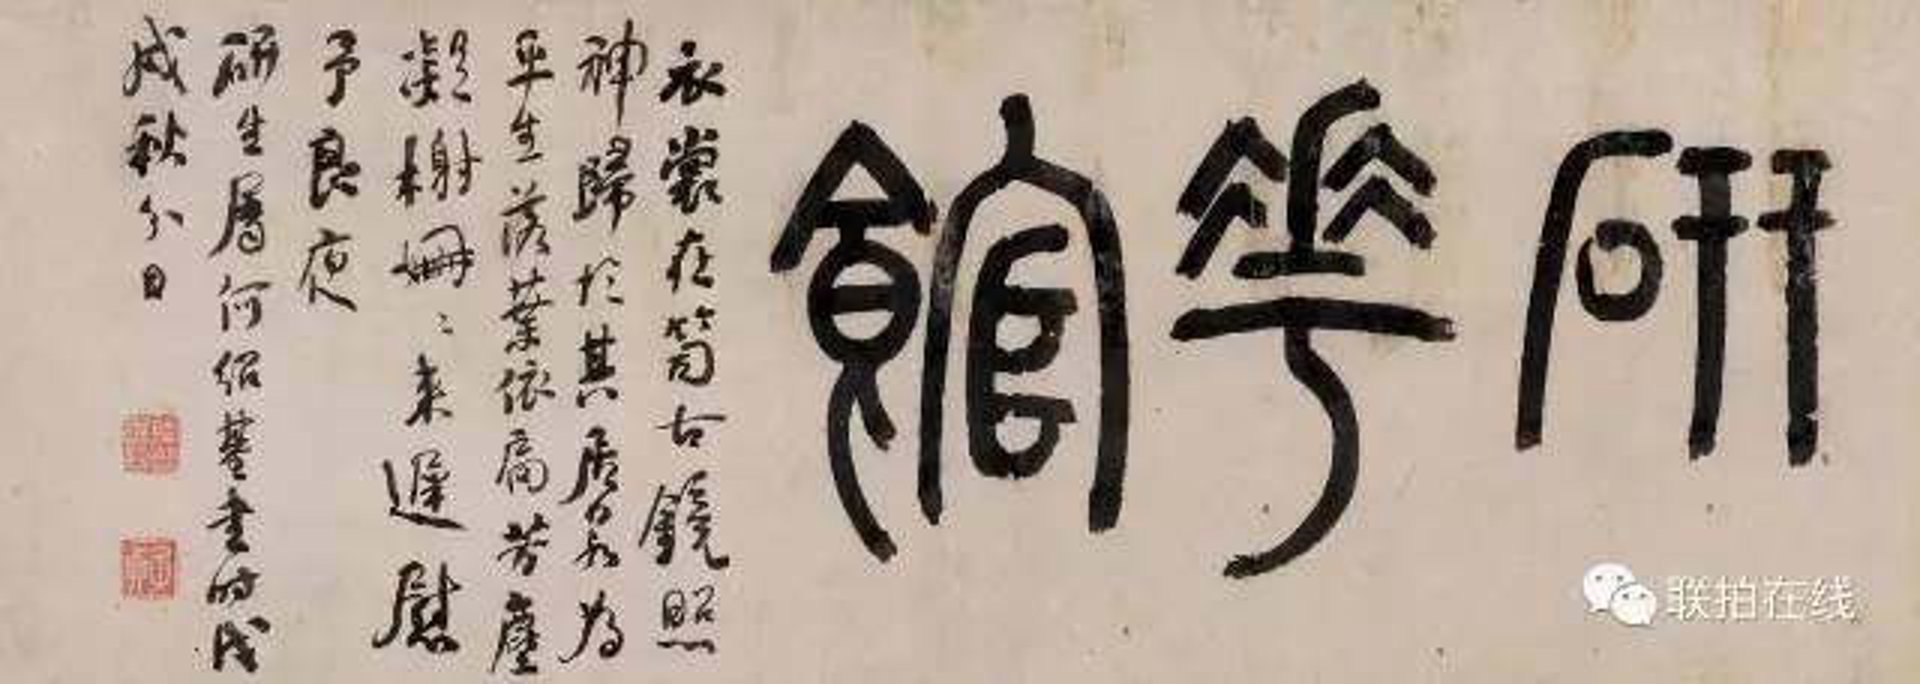 研華館
衣裳在笥古鏡照
神歸於其居象為
平生落葉依扃芳塵
凝榭姍〻来遲慰
予良夜
研生屬何紹基書時戊
戌秋分日
联拍在线